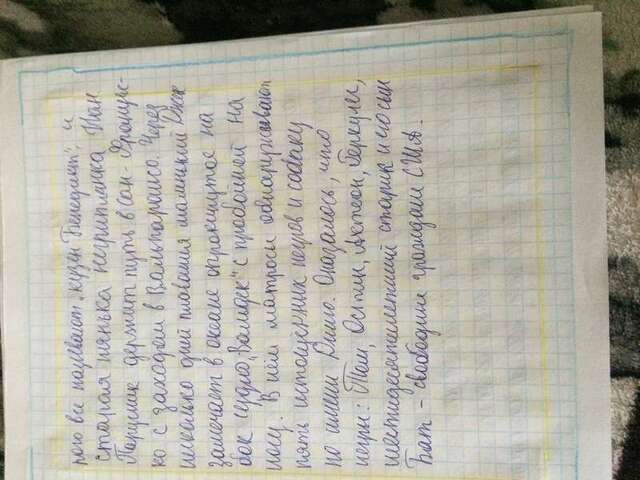 рого все называют „кузен Бенедикт", и
старая нянька негритянка Нан
Парусник держит путь в Сан-Францис-
ко с заходом в Вальпараисо. Через
несколько дней плавания маленький Джек
замечает в океане опрокинутое на
бок судно „Вальдек" с пробойной на
носу. В нём матросы обнаруживают
пять истощённых негров и собаку
по имени Динго. Оказалось, что
негры: Том, Остин, Актеон, Геркулес,
шестидесятилетний старик и его сын
Бат - свободные граждане США.